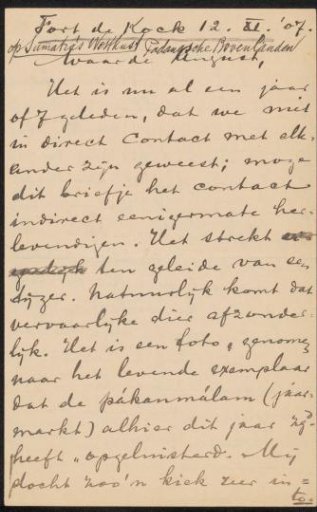 Fort de Kock 12. XI. '07.
op Sumatra's Westkust Padangsche Bovenlanden
Waarde August,
Het is nu al een jaar
of 7 geleden, dat we niet
in direct contact met elk-
ander zijn geweest; moge
dit briefje het contact
indirect eenigermate her-
levendigen. Het strekt
ten geleide van een
tijger. Natuurlijk komt dat
vervaarlijke dier afzonder-
lijk. Het is een foto, genomen
naar het levende exemplaar
dat de pákanmálam (jaar-
markt) alhier dit jaar
heeft „opgeluisterd. Mij
docht zoo'n kiek zeer in=
to=